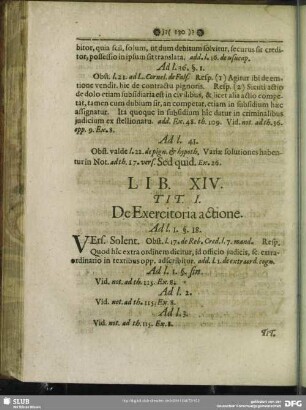 bitor, quia scil, solum, ut dum debitum solvitur, securus sit credi-
tor, possessio in ipsum sit translata. add. l. 16. de usucap.
Ad l. 36. §. 1.
Obst. l. 21. ad L. Cornel. de Fals. Resp. (1) Agitur ibi de em-
tione vendit. hic de contractu pignoris. Resp. (2) Sicuti actio
de dolo etiam subsidiaria est in civilibus, & licet alia actio compe-
tat, tamen cum dubium sit, an competat, etiam in subsidium hic
assignatur. Ita quoque in subsidium hic datur in criminalibus
judicium ex stellionatu. add. Ex. 48. th. 109. Vid. not. ad th. 36.
opp. 9. Ex. 2.
Ad l. 41.
Obst. valde l. 22. de pign. & hypoth. Variæ solutiones haben-
tur in Not. ad th. 27. vers. Sed quid. Ex. 26.
LIB. XIV.
TIT. I.
De Exercitoria actione.
Ad l. 1. §. 18.
VErs. Solent. Obst. l. 17. de Reb. Cred. l. 7. mand. Resp.
Quod hîc extra ordinem dicitur, id officio judicis, & extra-
ordinario in textibus opp. adscribitur. add. l. 2. de extraord. cogn.
Ad l. 1. §. fin.
Vid. not. ad th. 125. Ex. 8.
Ad l. 2.
Vid. not. ad th. 115. Ex. 8.
Ad l. 3.
Vid. not. ad th. 113. Ex. 8.
TIT.